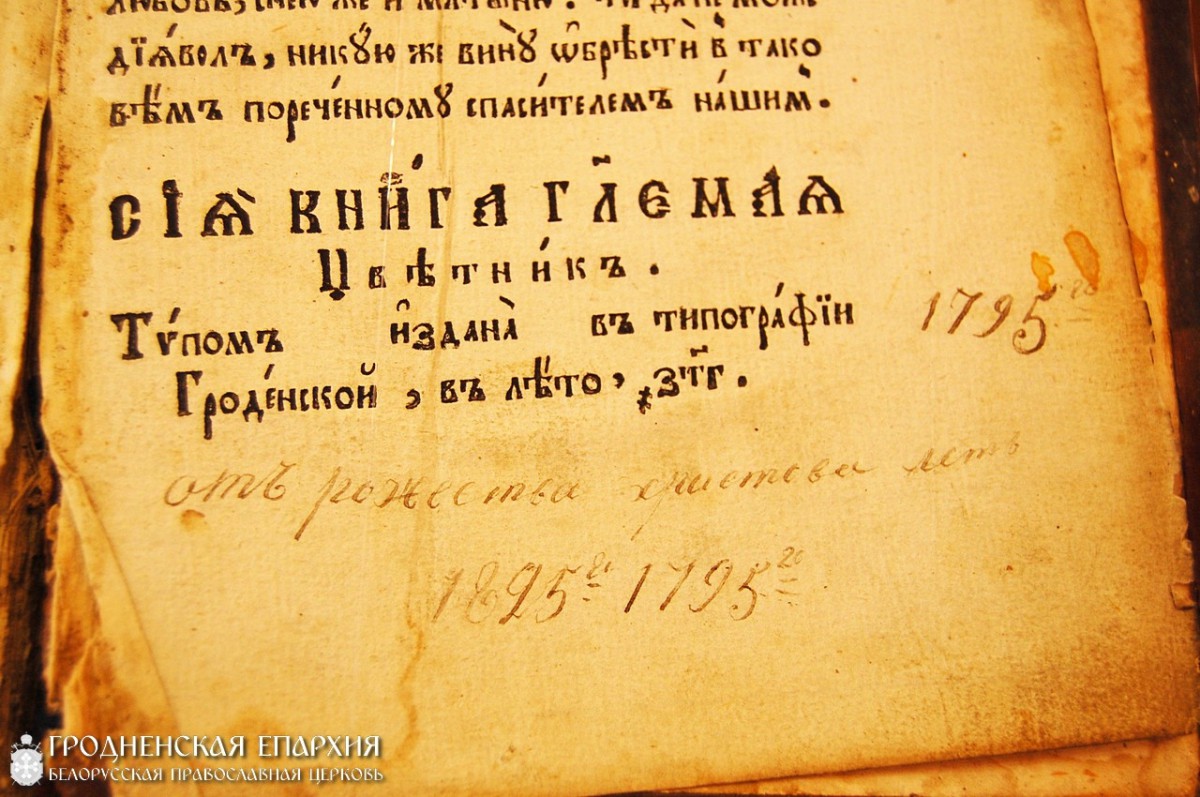 дїѧ́волъ, никꙋ́ю же винꙋ̀ ѡ҆брѣстѝ в̾ тако
вѣ́мъ порече́нномꙋ спаси́телемъ на́шим̾.
СІѦ̀ КНИ́ГА ГЛ҃ЕМАѦ
Цвѣтни́къ.
Тѵ́помъ и҆зданà въ типогра́фїи
Гроде́нской, въ лѣ́то, ҂зт҃г.
1795го
отъ рожества христова летъ
1825го 1795го
ГРОДНЕНСКАЯ ЕПАРХИЯ
БЕЛОРУССКАЯ ПРАВОСЛАВНАЯ ЦЕРКОВЬ